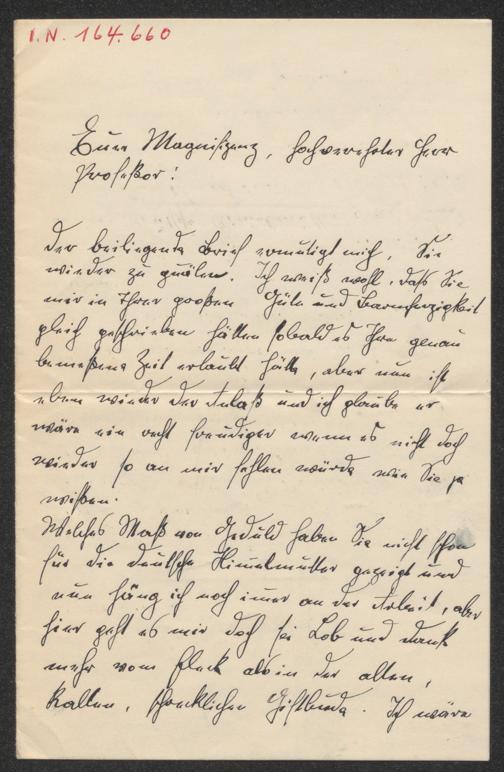 I.N. 164.660
Eure Magnifizenz, hochverehrter Herr
Professor!
Der beiliegende Brief ermutigt mich, Sie
wieder zu quälen. Ich weiß wohl, dass Sie
mir in Ihrer großen Güte und Barmherzigkeit
gleich geschrieben hätten sobald es Ihre genau
bemessene Zeit erlaubt hätte, aber nun ist
eben wieder der Anlaß und ich glaube er
wäre ein recht freudiger wenn es nicht doch
wieder so an mir fehlen würde wie Sie ja
wissen.
Welches Maß von Geduld haben Sie nicht schon
für die deutsche Himmelmutter gezeigt und
nun häng ich noch imer an der Arbeit, aber
hier geht es mir doch sei Lob und Dank
mehr vom Fleck als in der alten,
kalten, schrecklichen Giftbude. Ich wäre